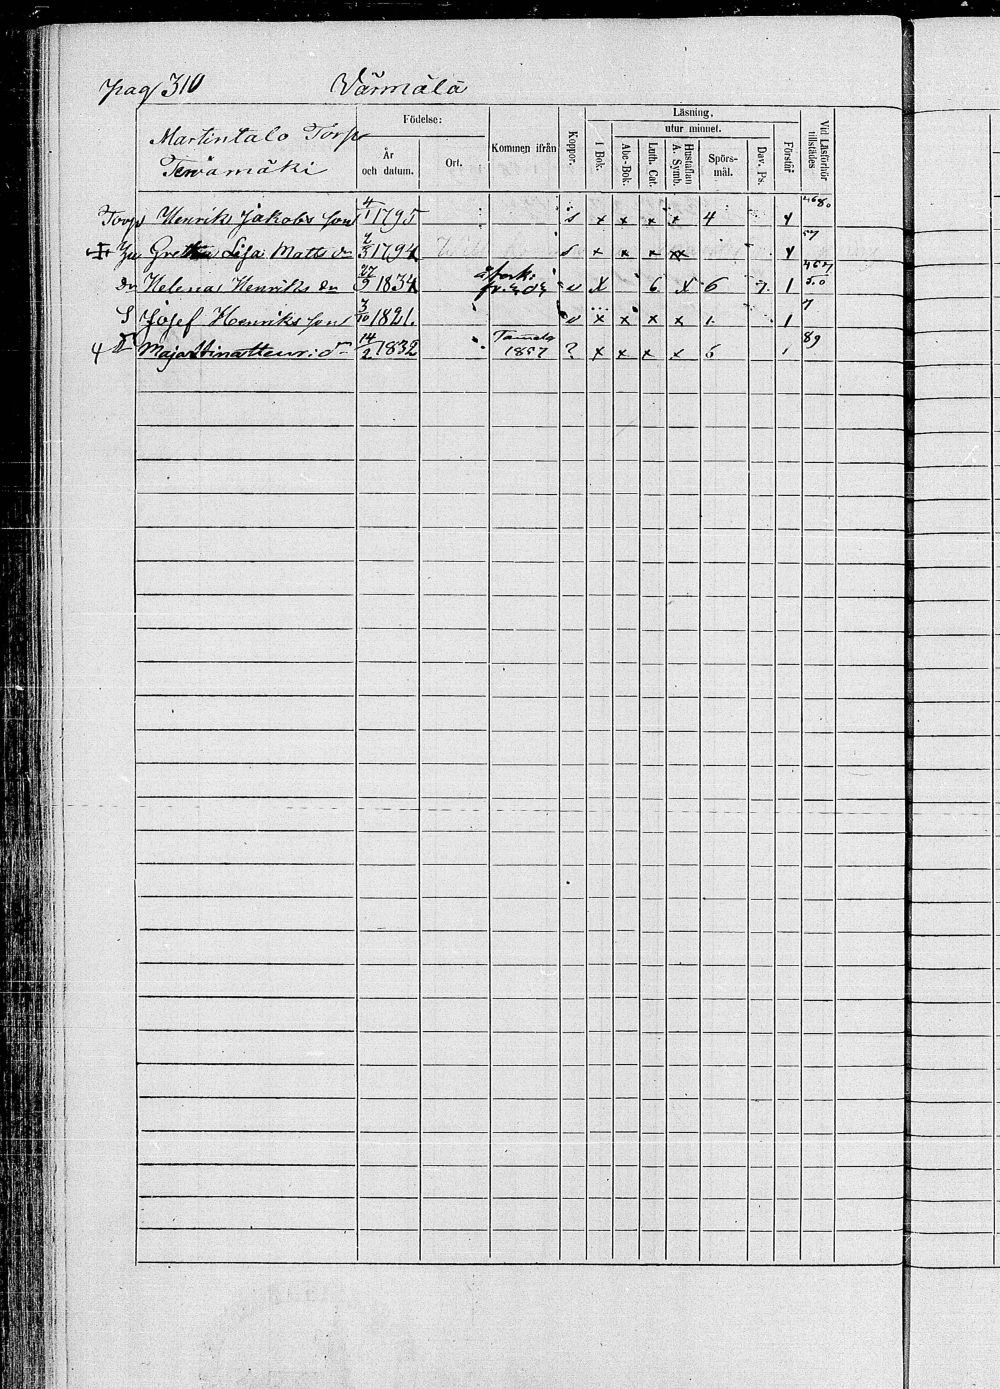 pag 310 Värmälä
Martintalo Torp
Tervämäki
Födelse:
År och datum.
Ort.
Kommen ifrån
Koppor.
Läsning,
utur minnet.
I Bok.
Abc-Bok.
Luth. Cat.
Hustaflan A. Symb.
Spörs-mål.
Dav. Ps.
Förstår
Vid Läsförhör tillstädes
Torp Henrik Jakobs son 4/1 1795 s x x x x 4 4
hu Greta Lisa Matts dr 2/3 1794 s x x x x 4 57
dr Helena Henriks dr 27/9 1834 x 6 x 6 7. 1
S Josef Henriks son 3/10 1821. x x x x 1. 1 7
Maja Stina dr 14/2 1832 Tammela 1857 ? x x x x 5 89